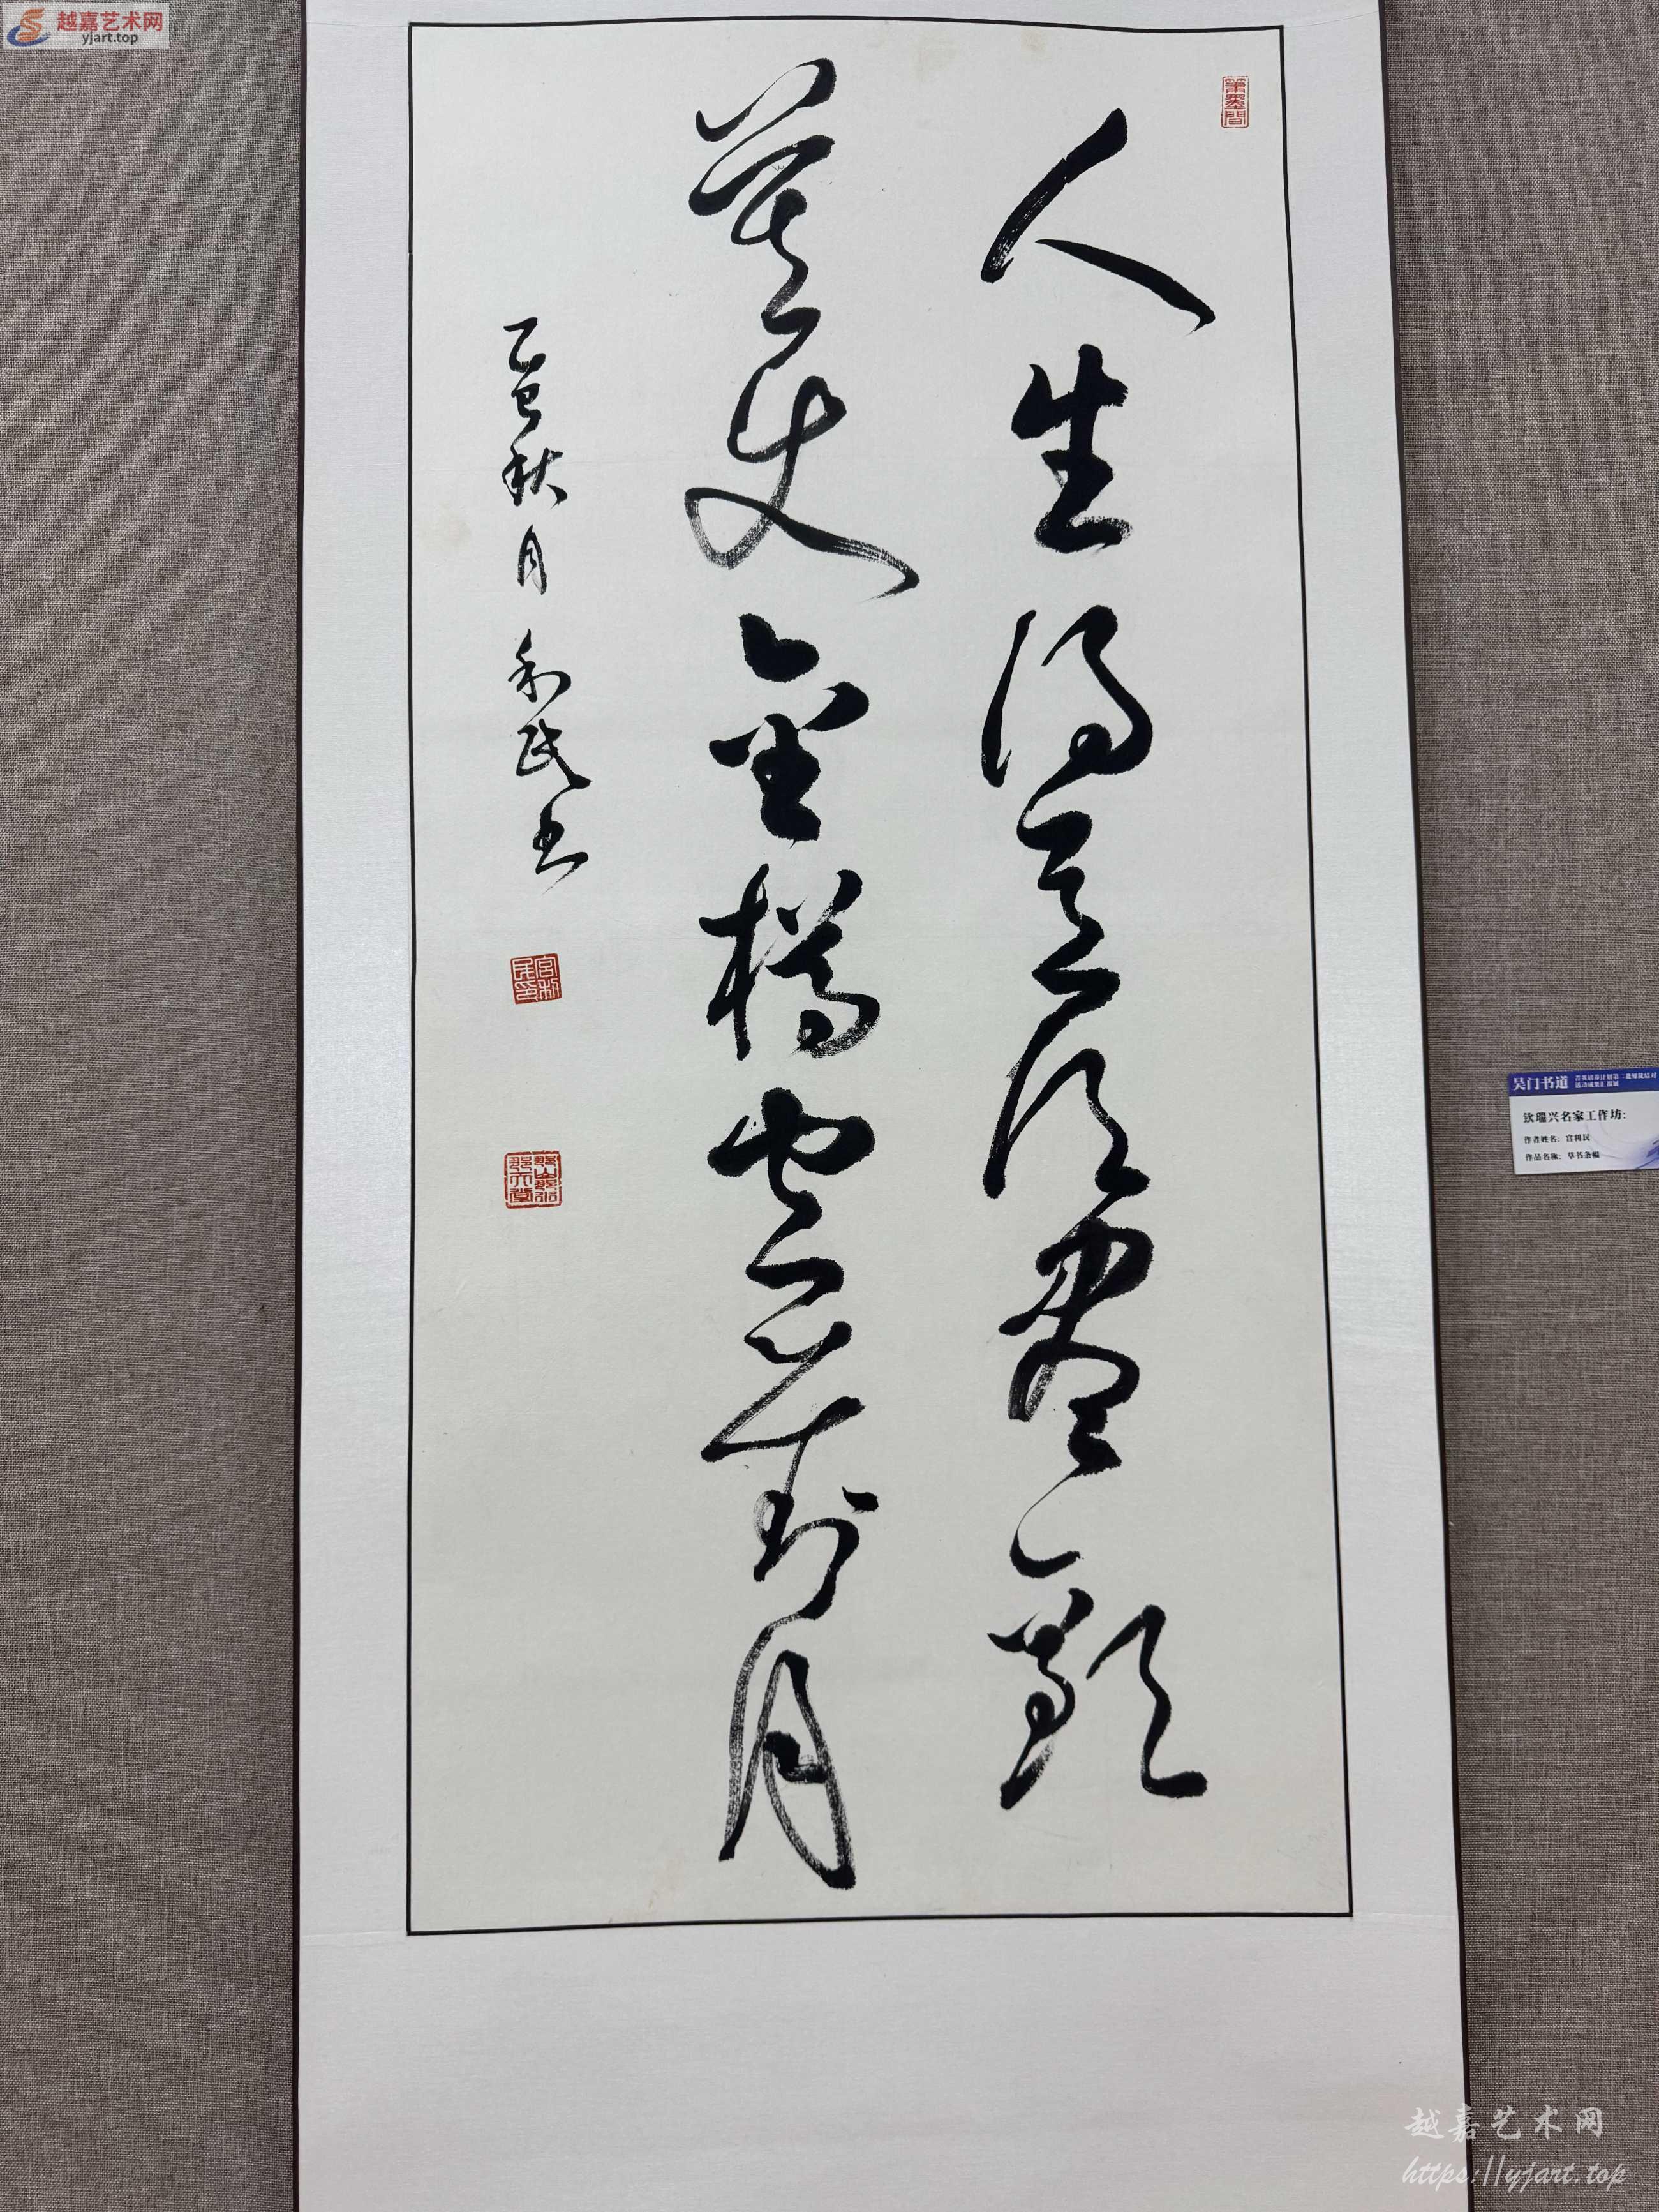 越嘉艺术网
yjart.top
人生得意须尽欢
莫使金樽空对月
乙巳秋月 利民书
宫利民印
吴门书道
钦瑞兴名家工作坊:
作者姓名: 宫利民
作品名称: 草书条幅
越嘉艺术网
https://yjart.top